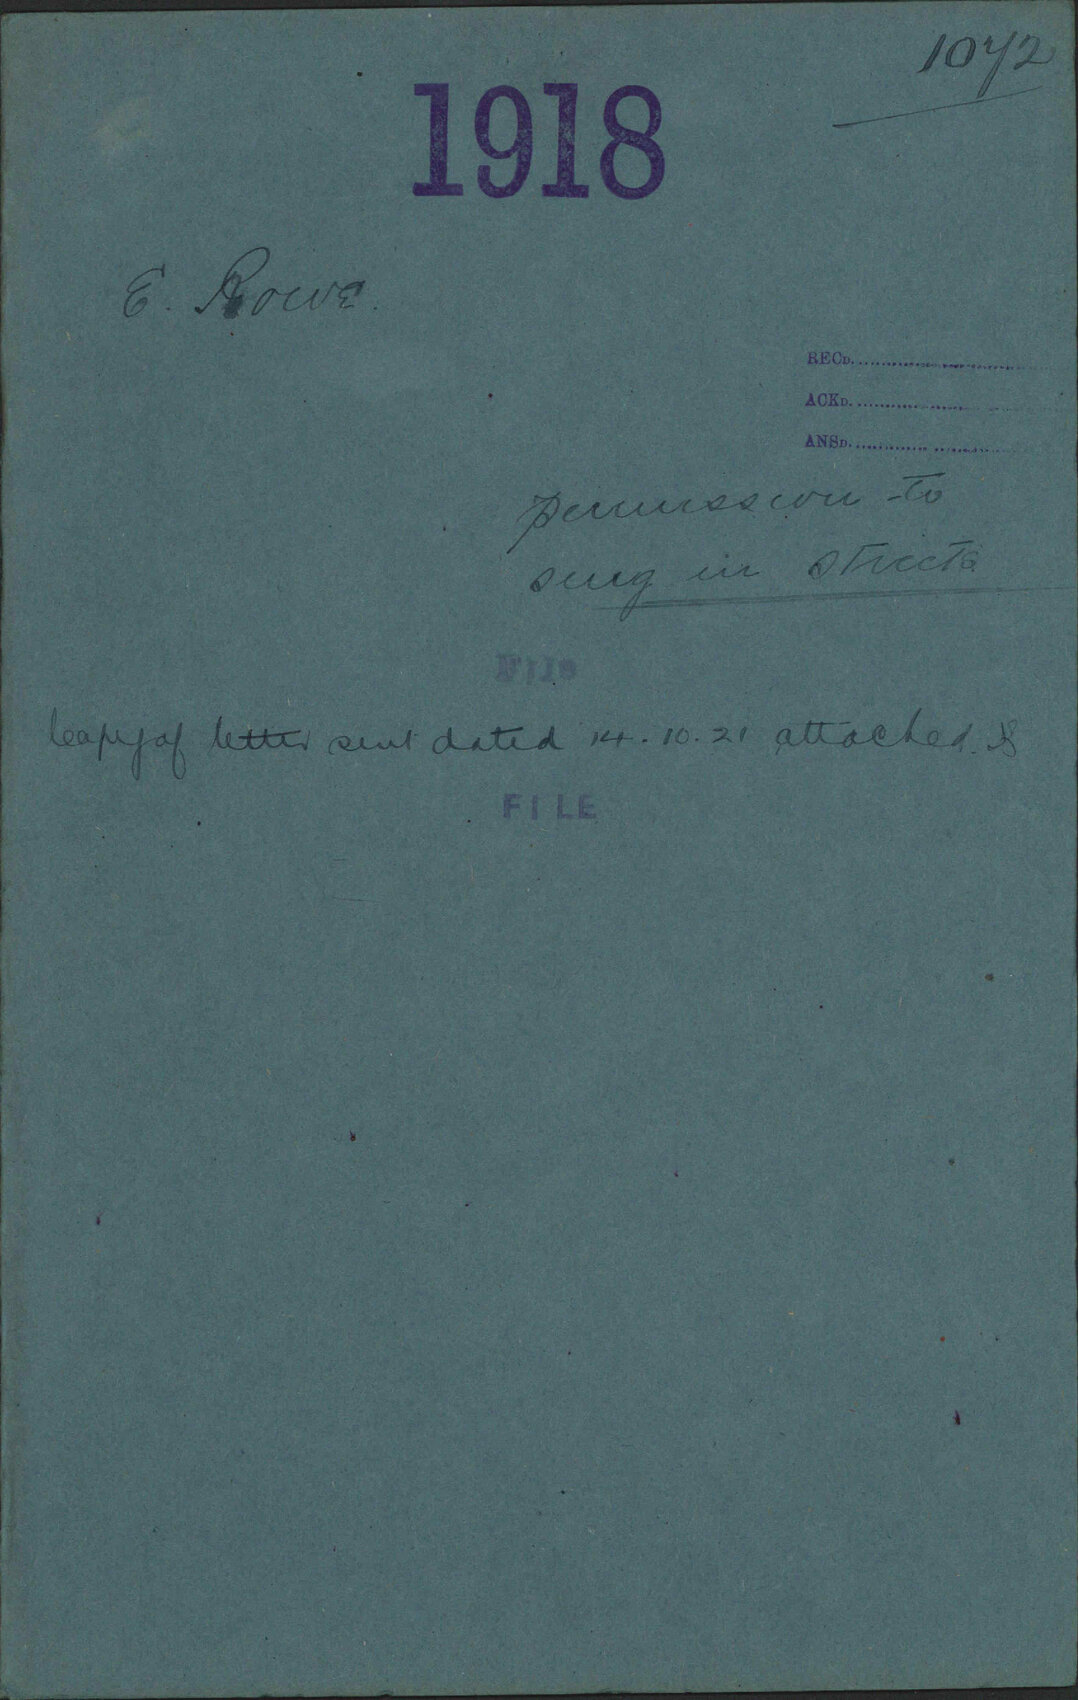 1072
1918
E. Rowe.
RECD.
ACKD.
ANSD.
permission to
sing in streets
File
Copy of letter sent dated 14.10.21 attached.
FILE